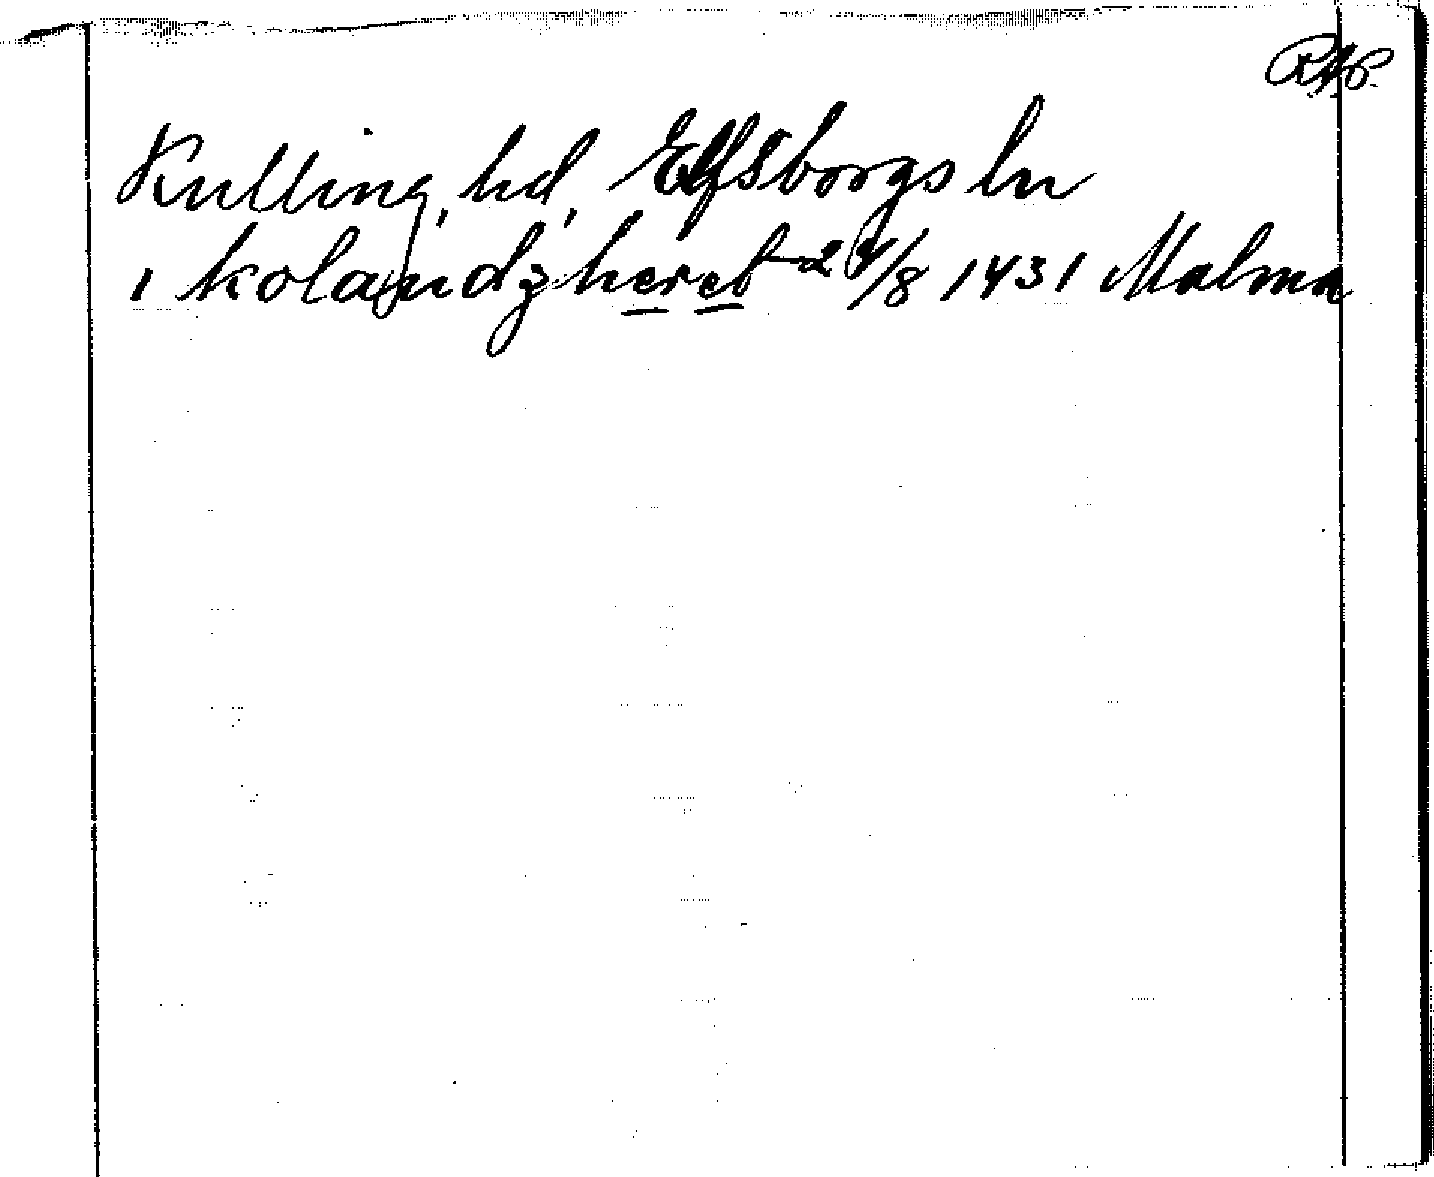 RAP.
Kulling, hd, Elfsborgs ln
i kolandzheret 24/8 1431 Malma